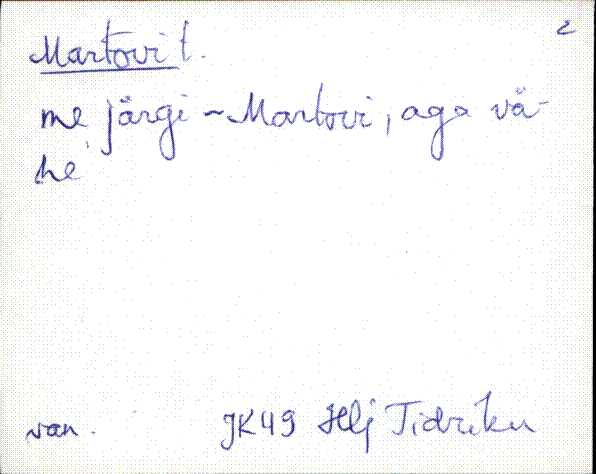 2
Martovi t.
me järgi ~ Martovi, aga vä-
he
van. JK49 Hlj Tidriku